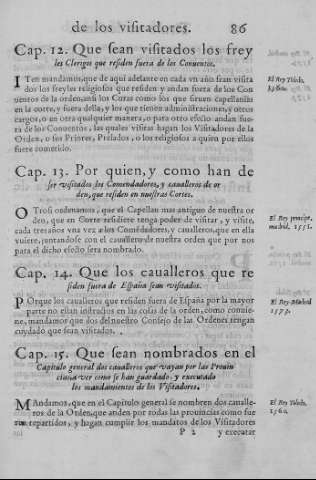 de los visitadores. 86
Cap. 12. Que sean visitados los frey
les Clerigos que residen fuera de los Conuentos.
ITen mandamos, que de aqui adelante en cada vn año sean visita
dos los freyles religiosos que residen y andan fuera de los Con
uentos de la orden, ansi los Curas como los que siruen capellanias
en la corte, y fuera della, y los que tienen administraciones, y otros
cargos, o en otra qualquier manera, o para otro efecto andan fue
ra de los Conuentos, las quales visitas hagan los Visitadores de la
Orden, o los Priores, Prelados, o los religiosos a quien por ellos
fuere cometido.
El Rey Toledo,
1560.
Cap. 13. Por quien, y como han de
ser visitados los Comendadores, y caualleros de or
den, que residen en nuestras Cortes.
OTrosi ordenamos, que el Capellan mas antiguo de nuestra or
den, que en Corte residiere tenga poder de visitar, y visite,
cada tres años vna vez a los Comēdadores, y caualleros, que en ella
vuiere, juntandose con el cauallero de nuestra orden que por nos
para el dicho efecto sera nombrado.
El Rey principe,
madrid, 1551.
Cap. 14. Que los caualleros que re
siden fuera de España sean visitados.
POrque los caualleros que residen fuera de España por la mayor
parte no estan instructos en las cosas de la orden, como conuie
ne, mandamos que dos del nuestro Consejo de las Ordenes tengan
cuydado que sean visitados.
El Rey Madrid
1573.
Cap. 15. Que sean nombrados en el
Capitulo general dos caualleros que vayan por las Prouin
cias a ver como se han guardado, y executado
los mandamientos de los Visitadores.
MAndamos, que en el Capitulo general se nombren dos cavalle
ros de la Orden, que anden por todas las prouincias como fue
ren repartidos, y hagan cumplir los mandatos de los Visitadores
El Rey Toledo,
1560.
P 2 y executar